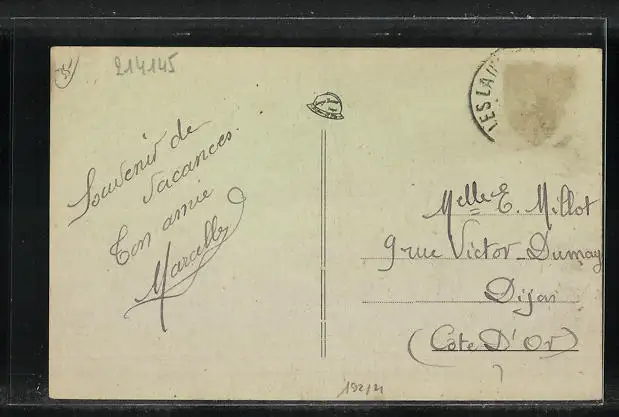 214145
Souvenir de
vacances.
Ton amie
Marcelle
LES LA
Melle E. Millot
9 rue Victor-Dumay
Dijon
(Côte D'Or)
192/21